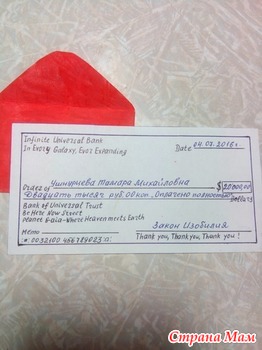 Infinite Universal Bank
In Every Galaxy, Ever Expanding
Date 04.07.2016г.
Order of Тамара Михайловна $20000,00
Двадцать тысяч руб. 00 коп. Оплачено полностью
Dollars
Bank of Universal Trust
Be Here Now Street
Planet Gaia-Where Heaven meets Earth
Закон Изобилия
Memo
Thank you, Thank you, Thank you!
Страна Мам